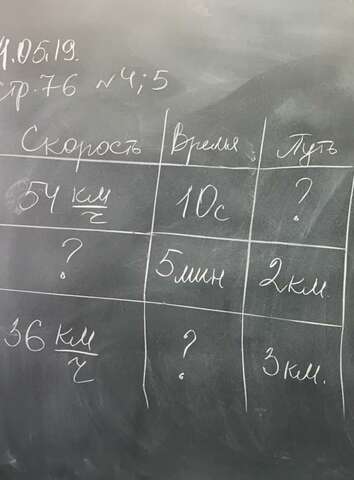 4.05.19.
стр.76 №4;5
Скорость Время Путь
54 км/ч 10с ?
? 5мин 2км
36 км/ч ? 3км.